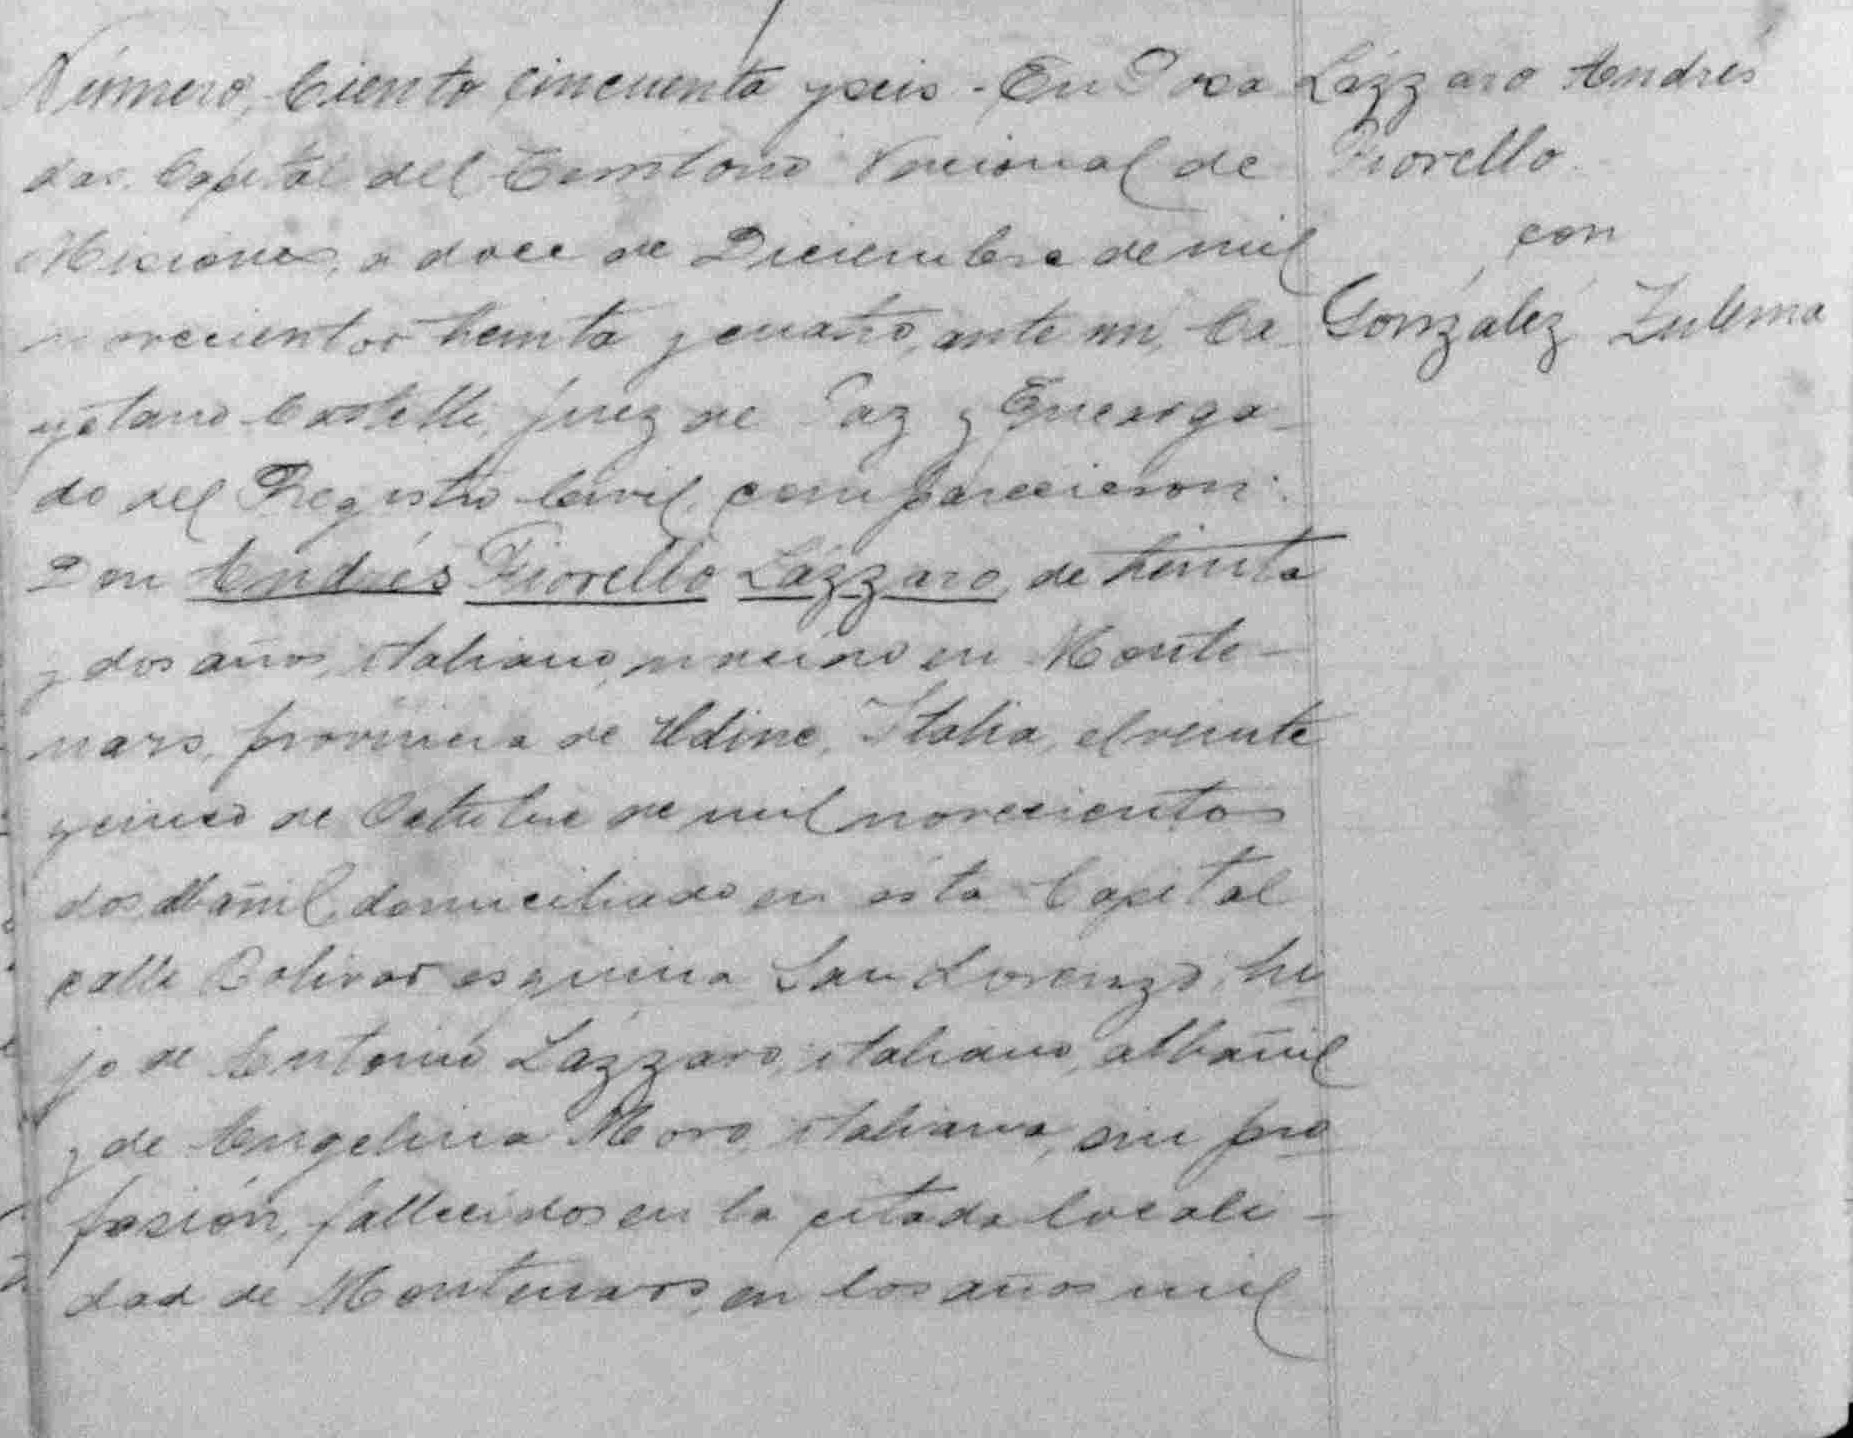 Número, Ciento cincuenta y seis - En Posa
das Capital del Territorio Nacional de
Misiones, a doce de Diciembre de mil
novecientos treinta y cuatro, ante mi, Ca
yetano Castelli, Juez de Paz y Encarga-
do del Registro Civil, comparecieron:
Don Andrés Fiorello Lázzaro, de treinta
y dos años, italiano, nacido en Monte-
nars, provincia de Udine, Italia, el veinte
y cinco de Octubre de mil novecientos
dos albañil, domiciliado en ésta Capital
calle Bolivar esquina San Lorenzo, hi
jo de Antonio Lázzaro, italiano, albañil
y de Angelina Moro, italiana, sin pro
fesión, fallecidos en la citada locali-
dad de Montenars, en los años mil
Lázzaro Andrés
Fiorello
con
González Zulema